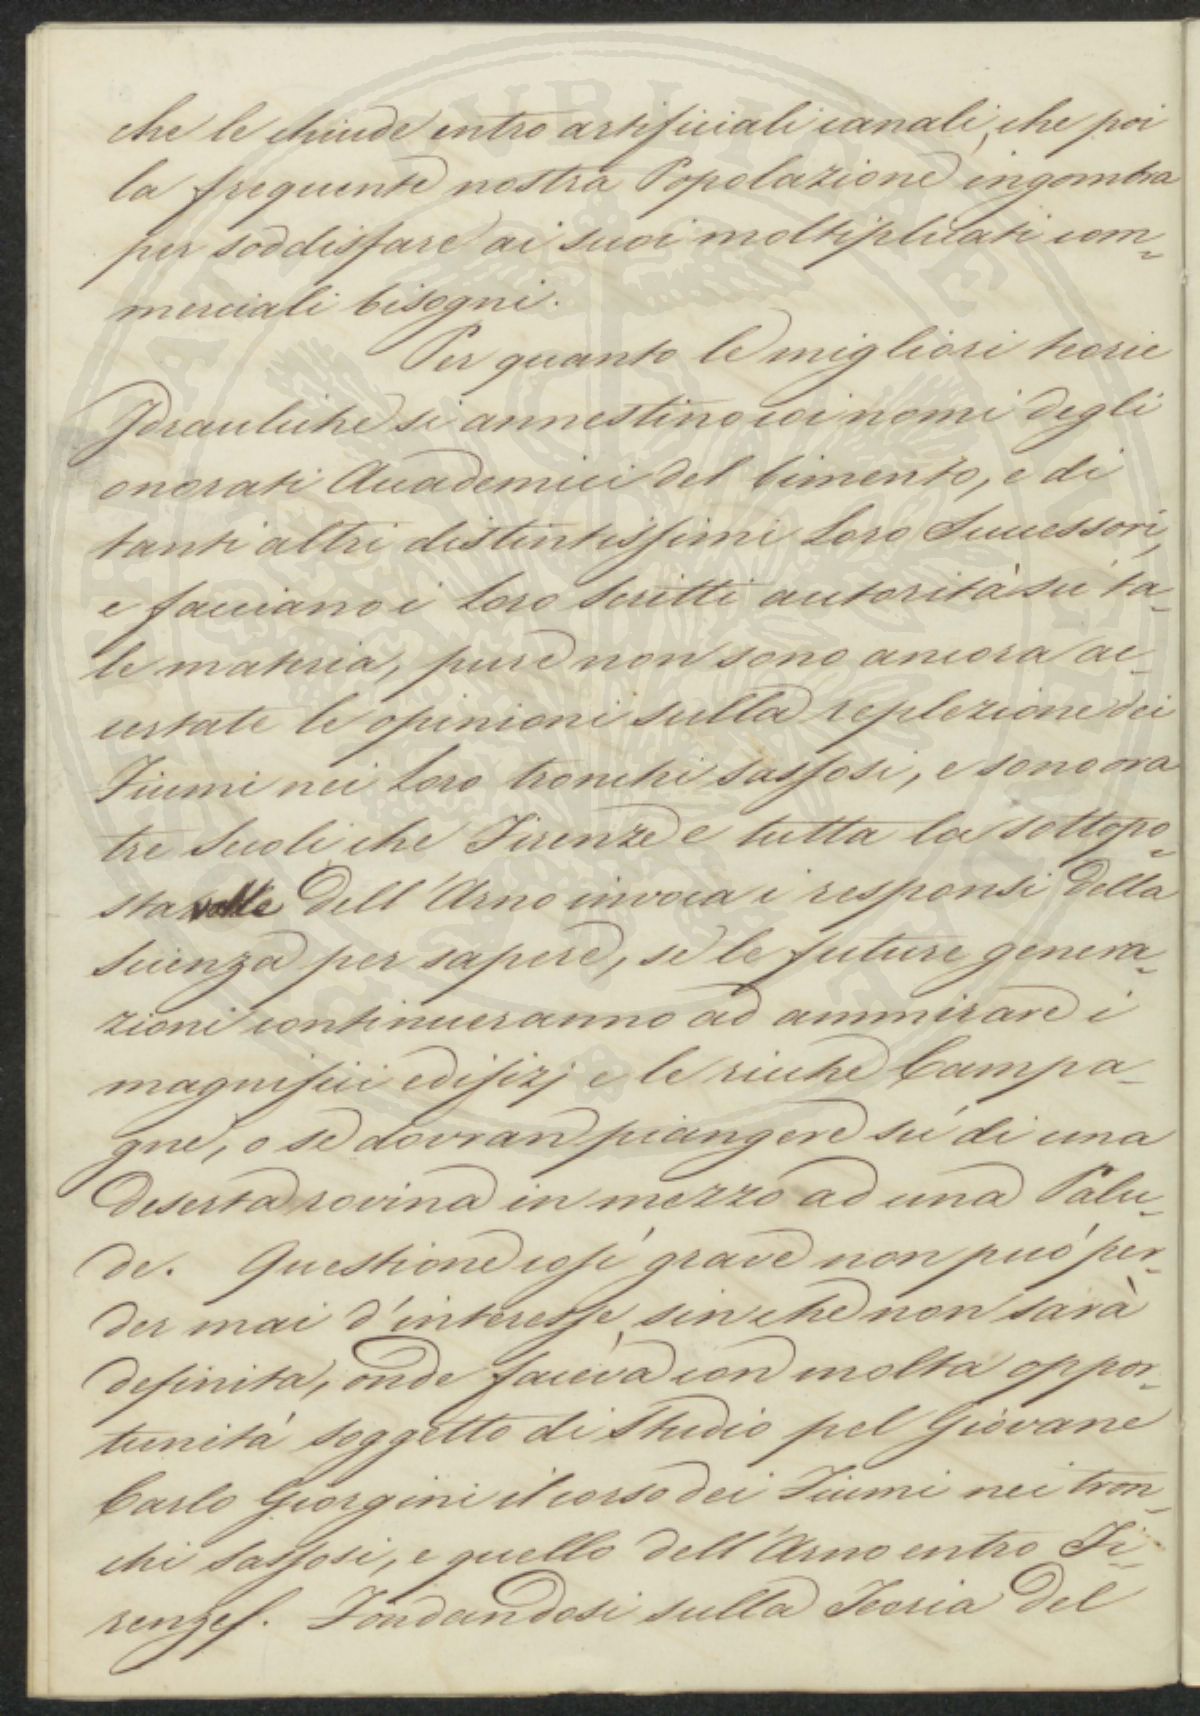 che le chiude entro artificiali canali, che poi
la frequente nostra Popolazione ingombra
per soddisfare ai suoi moltiplicati com=
merciali bisogni.
Per quanto le migliori teorie
Idrauliche si annestino coi nomi degli
onorati Accademici del Cimento, e di
tanti altri distintissimi Loro Successori,
e facciano i Loro Scritti autorità sù ta=
le materia, pure non sono ancora ac=
certate le opinioni sulla replezione dei
Fiumi nei Loro tronchi sassosi, e sono ora
tre Secoli che Firenze e tutta la sottopo=
sta valle dell'Arno invoca i responsi della
Scienza per sapere, se le future genera=
zioni continueranno ad ammirare i
magnifici edifizj e le ricche Campa=
gne, o se dovran piangere sù di una
deserta rovina in mezzo ad una Palu=
de. Questione così grave non può per=
der mai d'interesse, sinchè non sarà
definita, onde faceva con molta oppor=
tunità soggetto di Studio pel Giovane
Carlo Giorgini il corso dei Fiumi nei tron=
chi sassosi, e quello dell'Arno entro Fi=
renze. Fondandosi sulla Teoria del